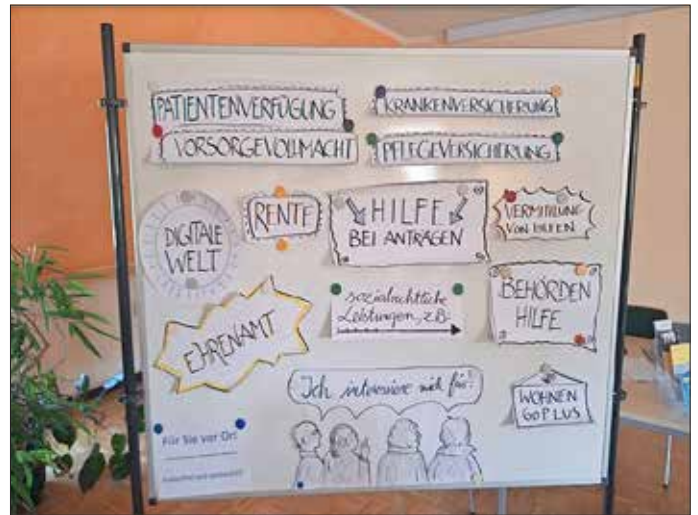 PATIENTENVERFÜGUNG
VORSORGEVOLLMACHT
KRANKENVERSICHERUNG
PFLEGEVERSICHERUNG
DIGITALE
WELT
RENTE
HILFE
BEI ANTRÄGEN
VERMITTLUNG
VON
EHRENAMT
sozialrechtliche
Leistungen, z.B.
BEHÖRDEN
HILFE
Ich interessiere mich für:
WOHNEN
60PLUS
Für Sie vor Ort